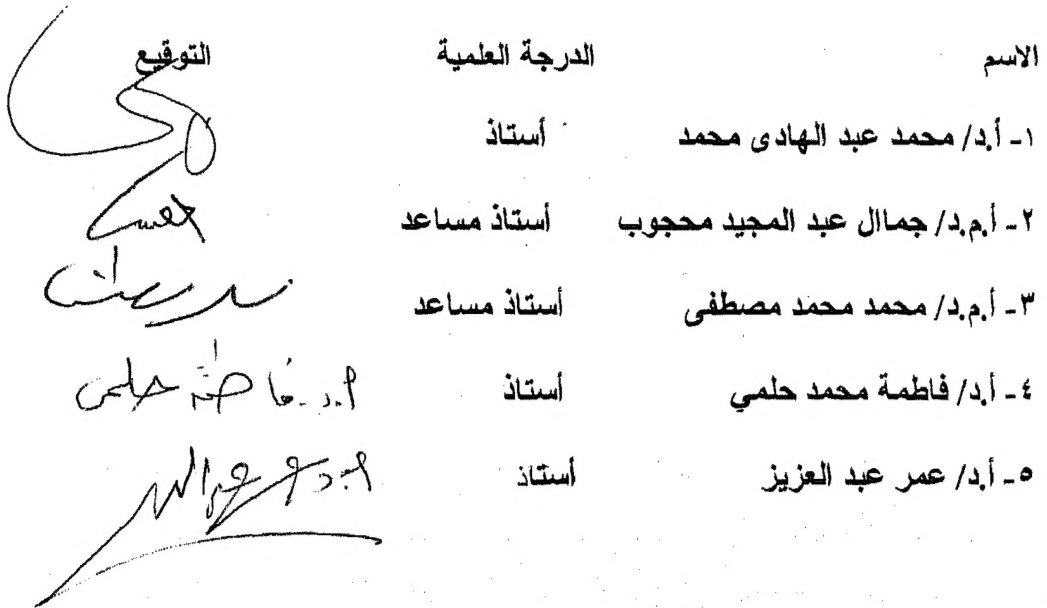 الاسم الدرجة العلمية التوقيع
١- أ.د/ محمد عبد الهادى محمد أستاذ
٢- أ.م.د/ جماال عبد المجيد محجوب أستاذ مساعد
٣- أ.م.د/ محمد محمد مصطفى أستاذ مساعد
٤- أ.د/ فاطمة محمد حلمي أستاذ أ.د. فاطمة حلمى
٥- أ.د/ عمر عبد العزيز أستاذ